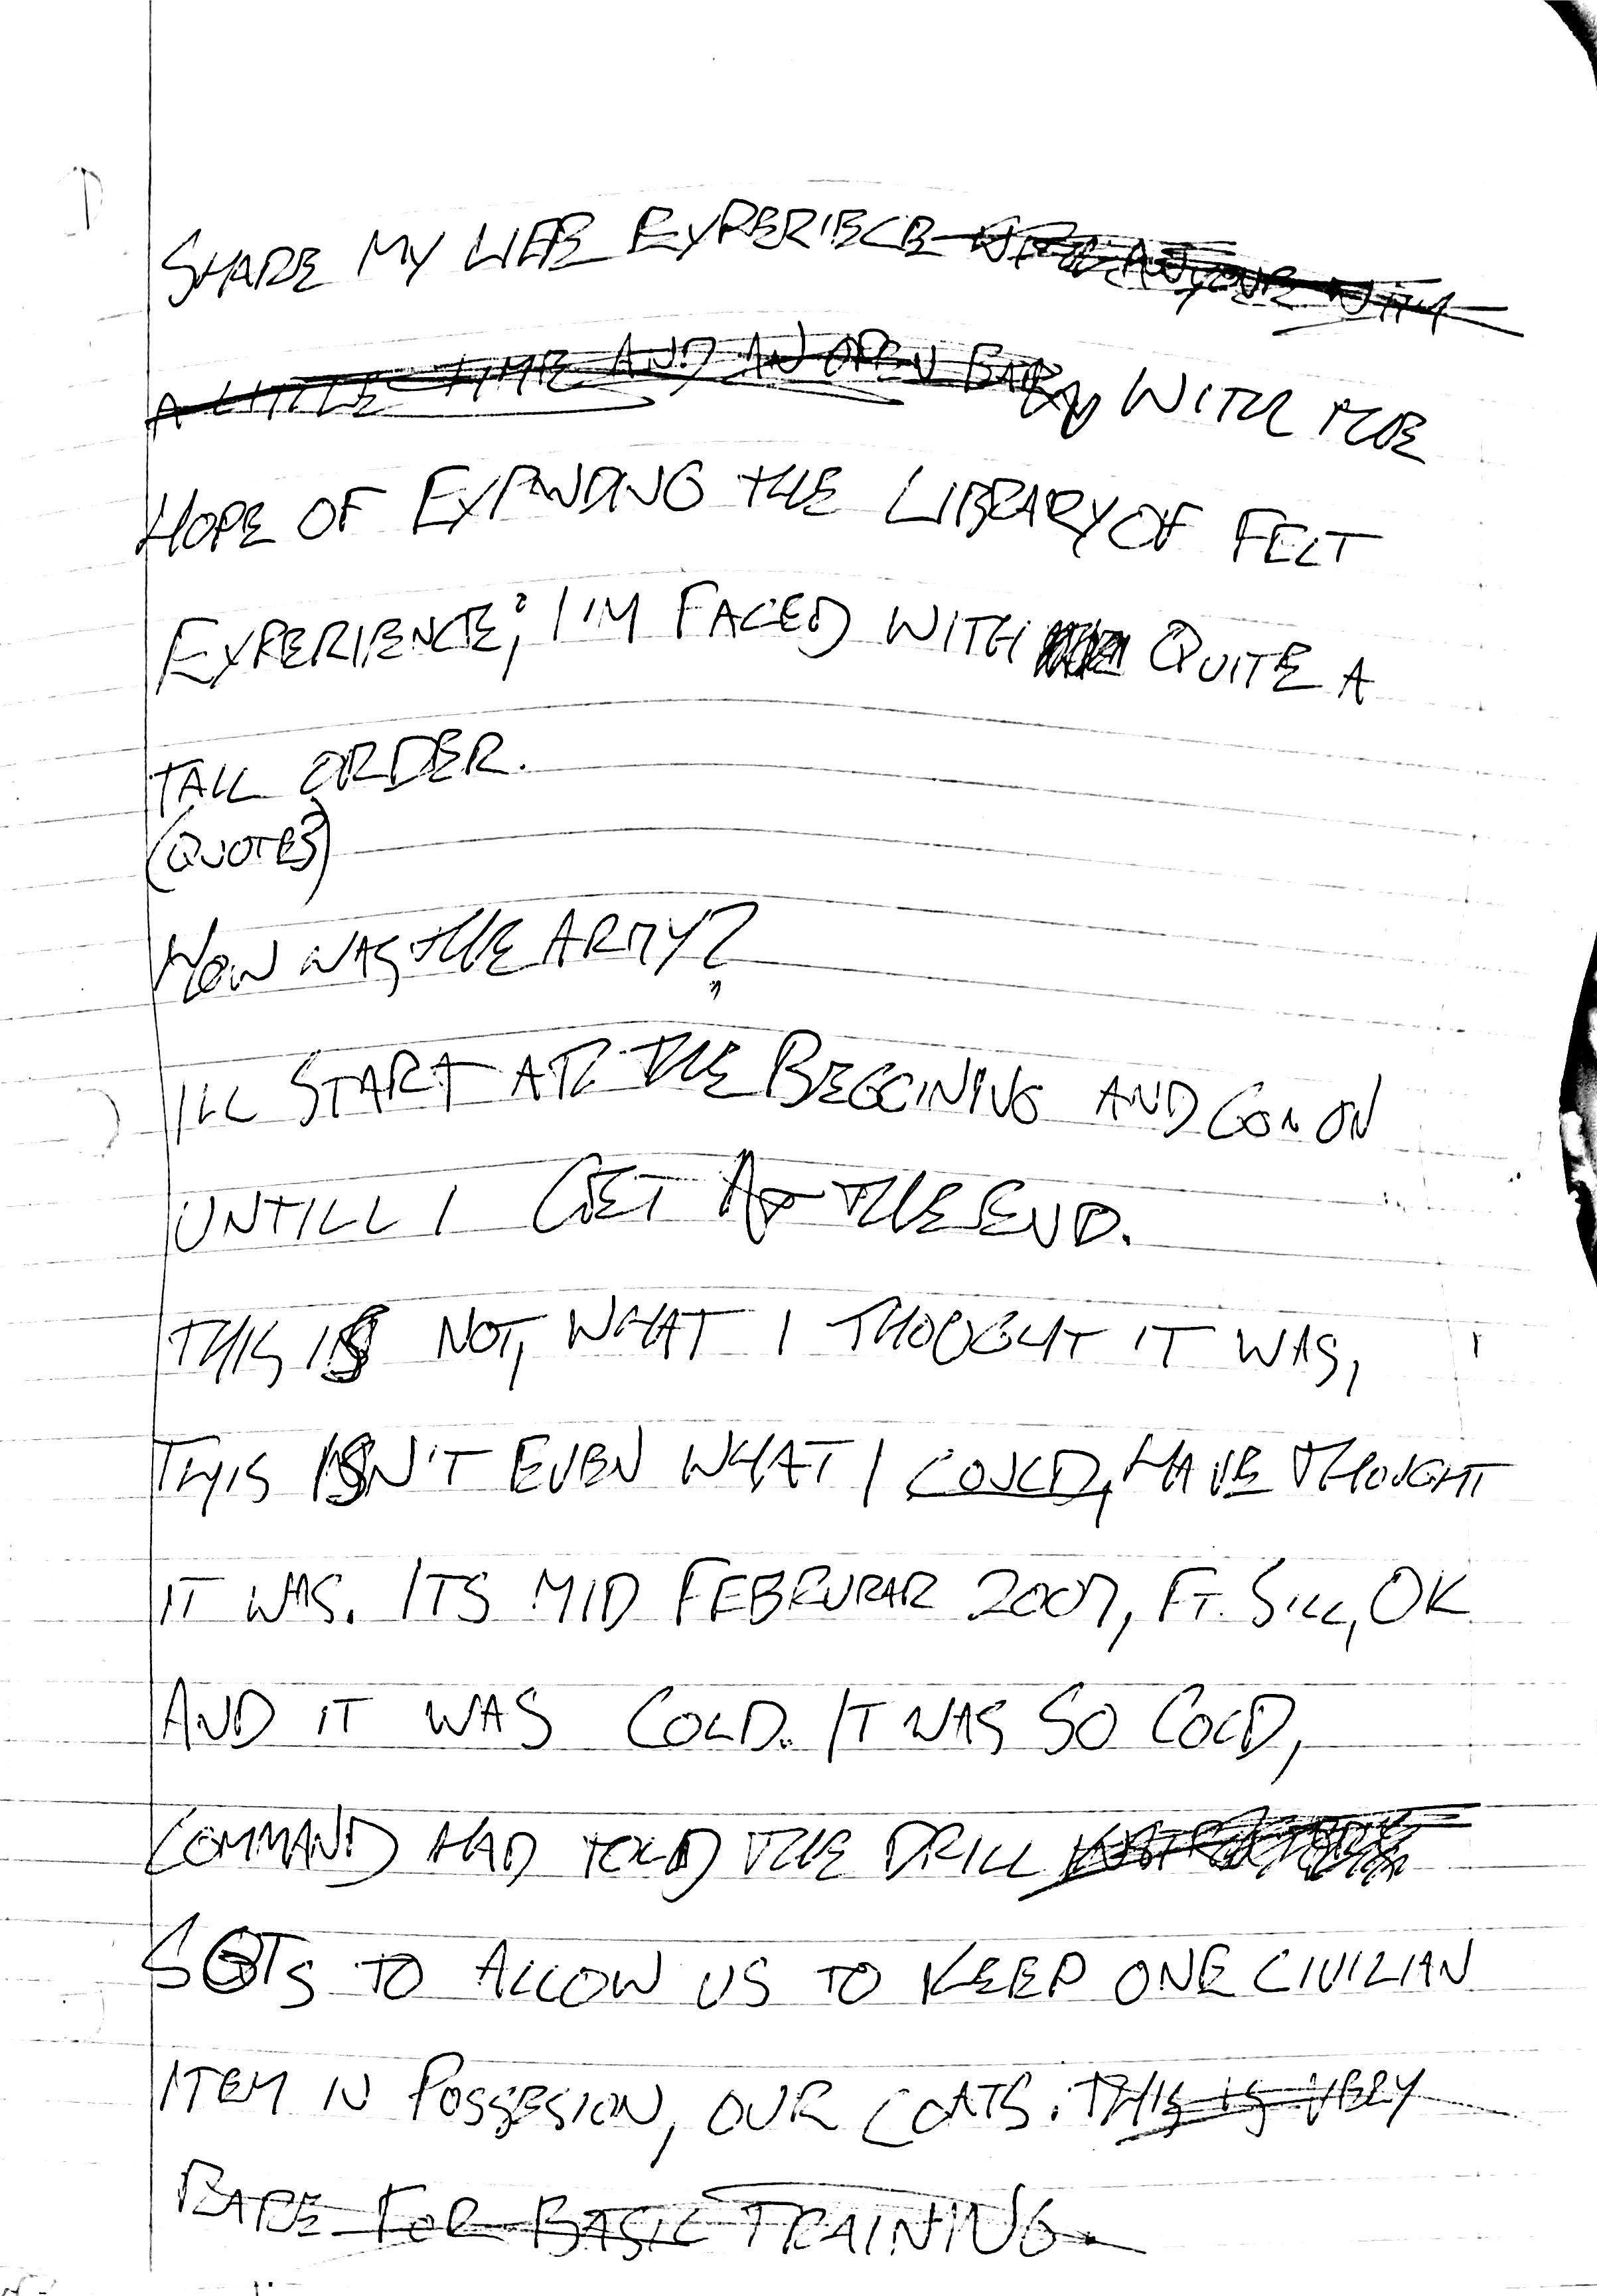 SHARE MY LIFE EXPERIECE
A LITTLE TIME AND AN OPEN BAR WITH THE
HOPE OF EXPANDING THE LIBRARY OF FELT
EXPERIENCE; I'M FACED WITH QUITE A
TALL ORDER.
(QUOTES)
HOW WAS THE ARMY?
ILL START AT THE BEGGINING AND GO ON
UNTILL I GET TO THE END.
THIS IS NOT, WHAT I THOUGHT IT WAS,
THIS ISN'T EVEN WHAT I COULD, HAVE THOUGHT
IT WAS. ITS MID FEBRURAR 2007, FT. SILL, OK
AND IT WAS COLD. IT WAS SO COLD,
COMMAND HAD TOLD THE DRILL
SGTS TO ALLOW US TO KEEP ONE CIVILIAN
ITEM IN POSSESION, OUR COATS. THIS IS VERY
RARE FOR BASIC TRAINING.